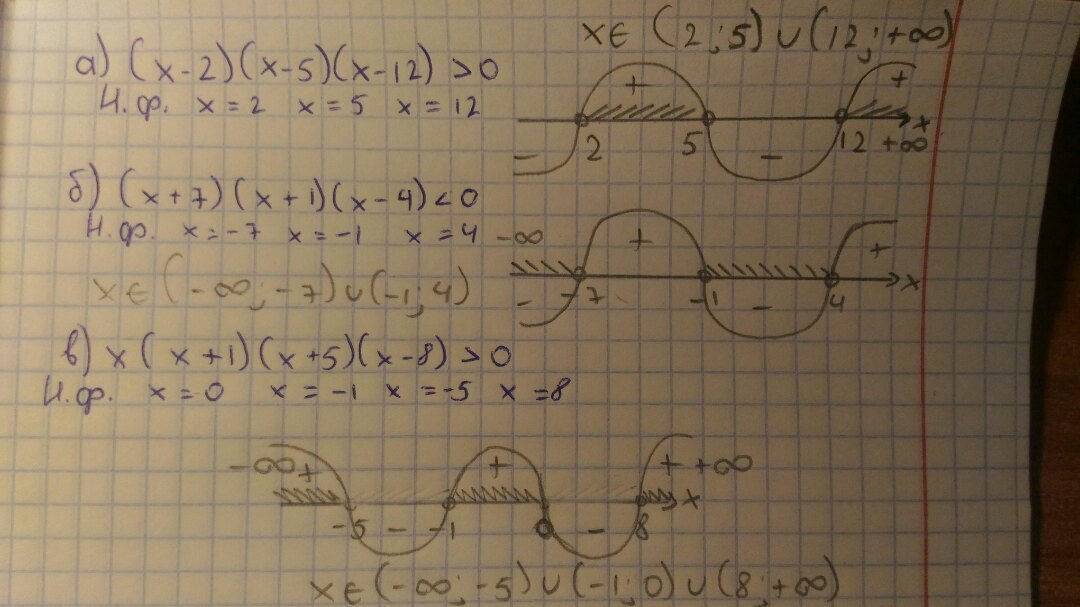 x∈ (2;5)∪(12;+∞)
а) (x-2)(x-5)(x-12)>0
Н.ф. x=2 x=5 x=12
+ +
2 5 12 +∞ x
- -
б) (x+7)(x+1)(x-4)<0
Н.ф. x=-7 x=-1 x=4
-∞ + +
x∈(-∞;-7)∪(-1;4)
- -7 -1 - 4 x
в) x(x+1)(x+5)(x-8)>0
Н.ф. x=0 x=-1 x=-5 x=8
-∞ + + + +∞
-5 - -1 0 - 8 x
x∈(-∞;-5)∪(-1;0)∪(8;+∞)